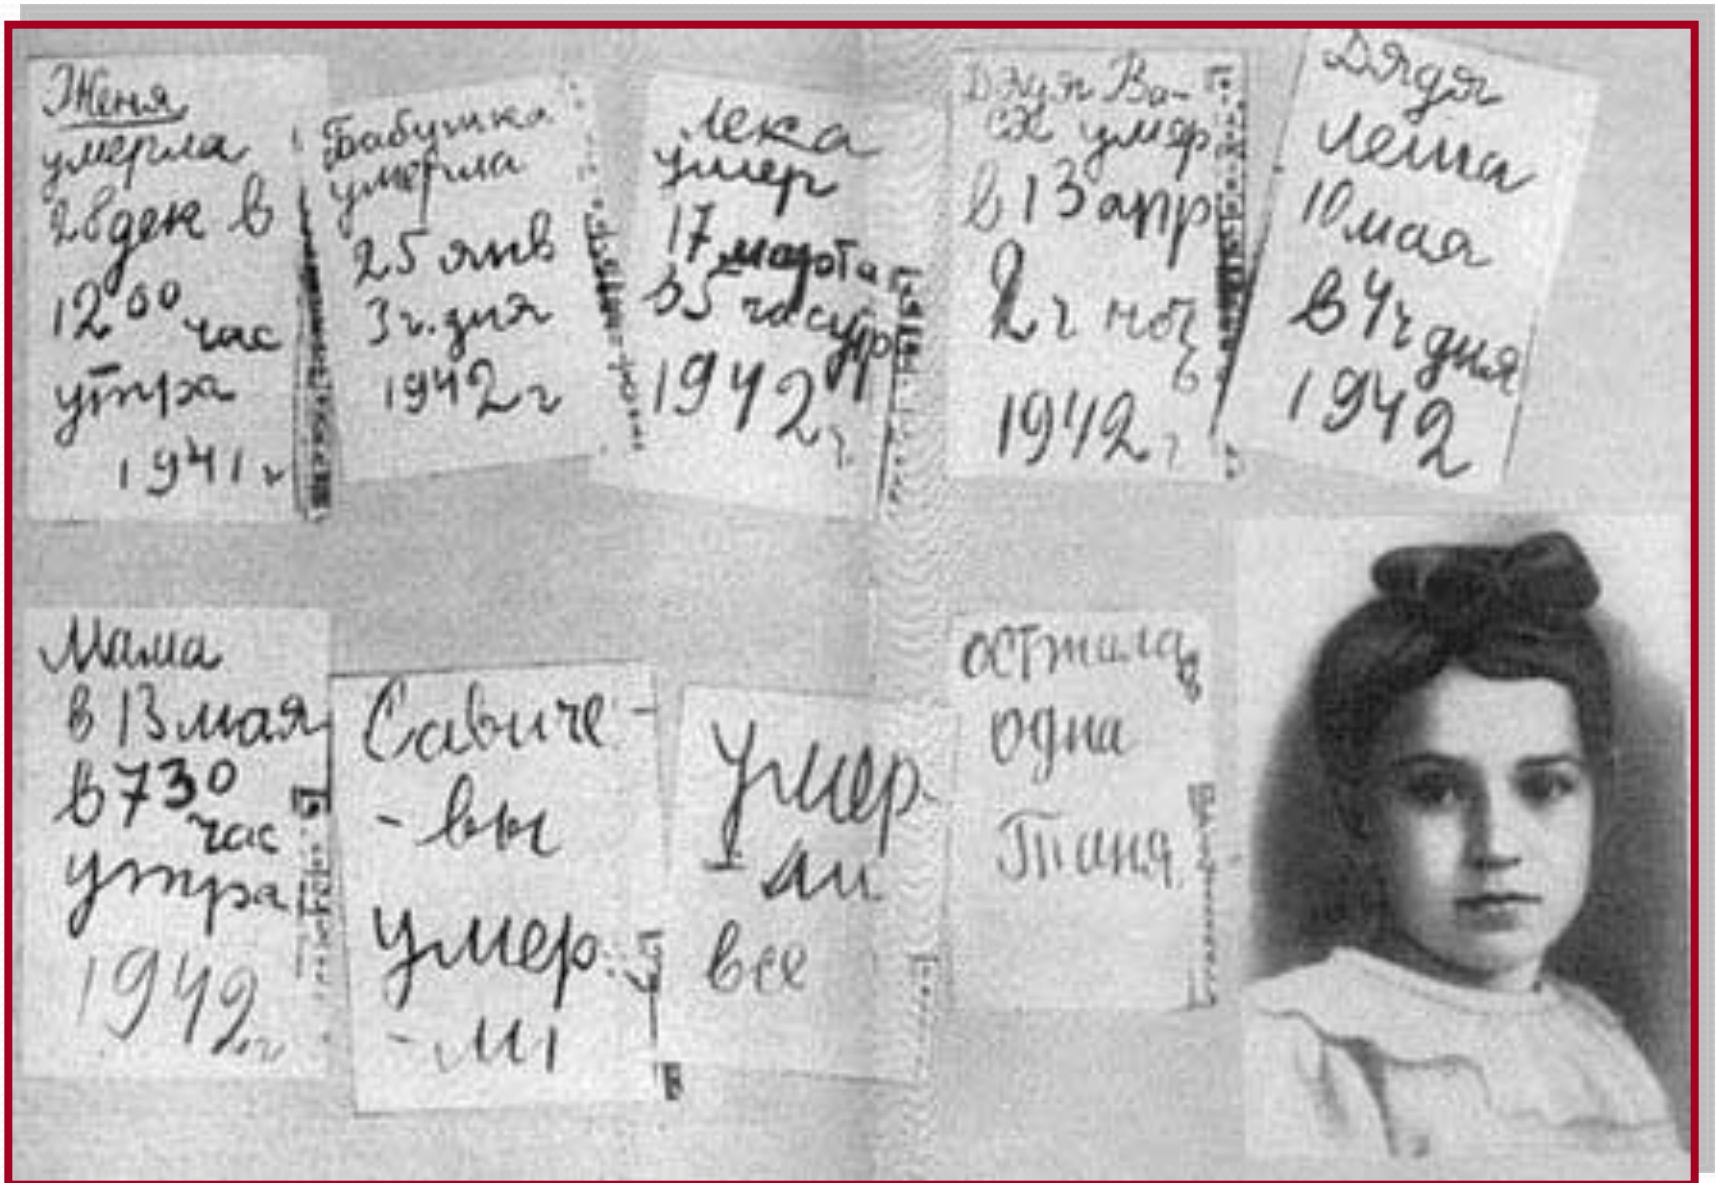 Женя
умерла
28 дек в
12 00 час
утра
1941 г
Бабушка
умерла
25 янв
3 ч. дня
1942 г
Лека
умер
17 марта
в 5 час утр
1942 г
Дядя Ва-
ся умер
в 13 апр
2 ч ноч
ь
1942 г
Дядя
Леша
10 мая
в 4 ч дня
1942
Мама
в 13 мая
в 7 30
час
утра
1942 г
Савиче-
-вы
умер
-ли
Умер-
-ли
все
осталась
одна
Таня